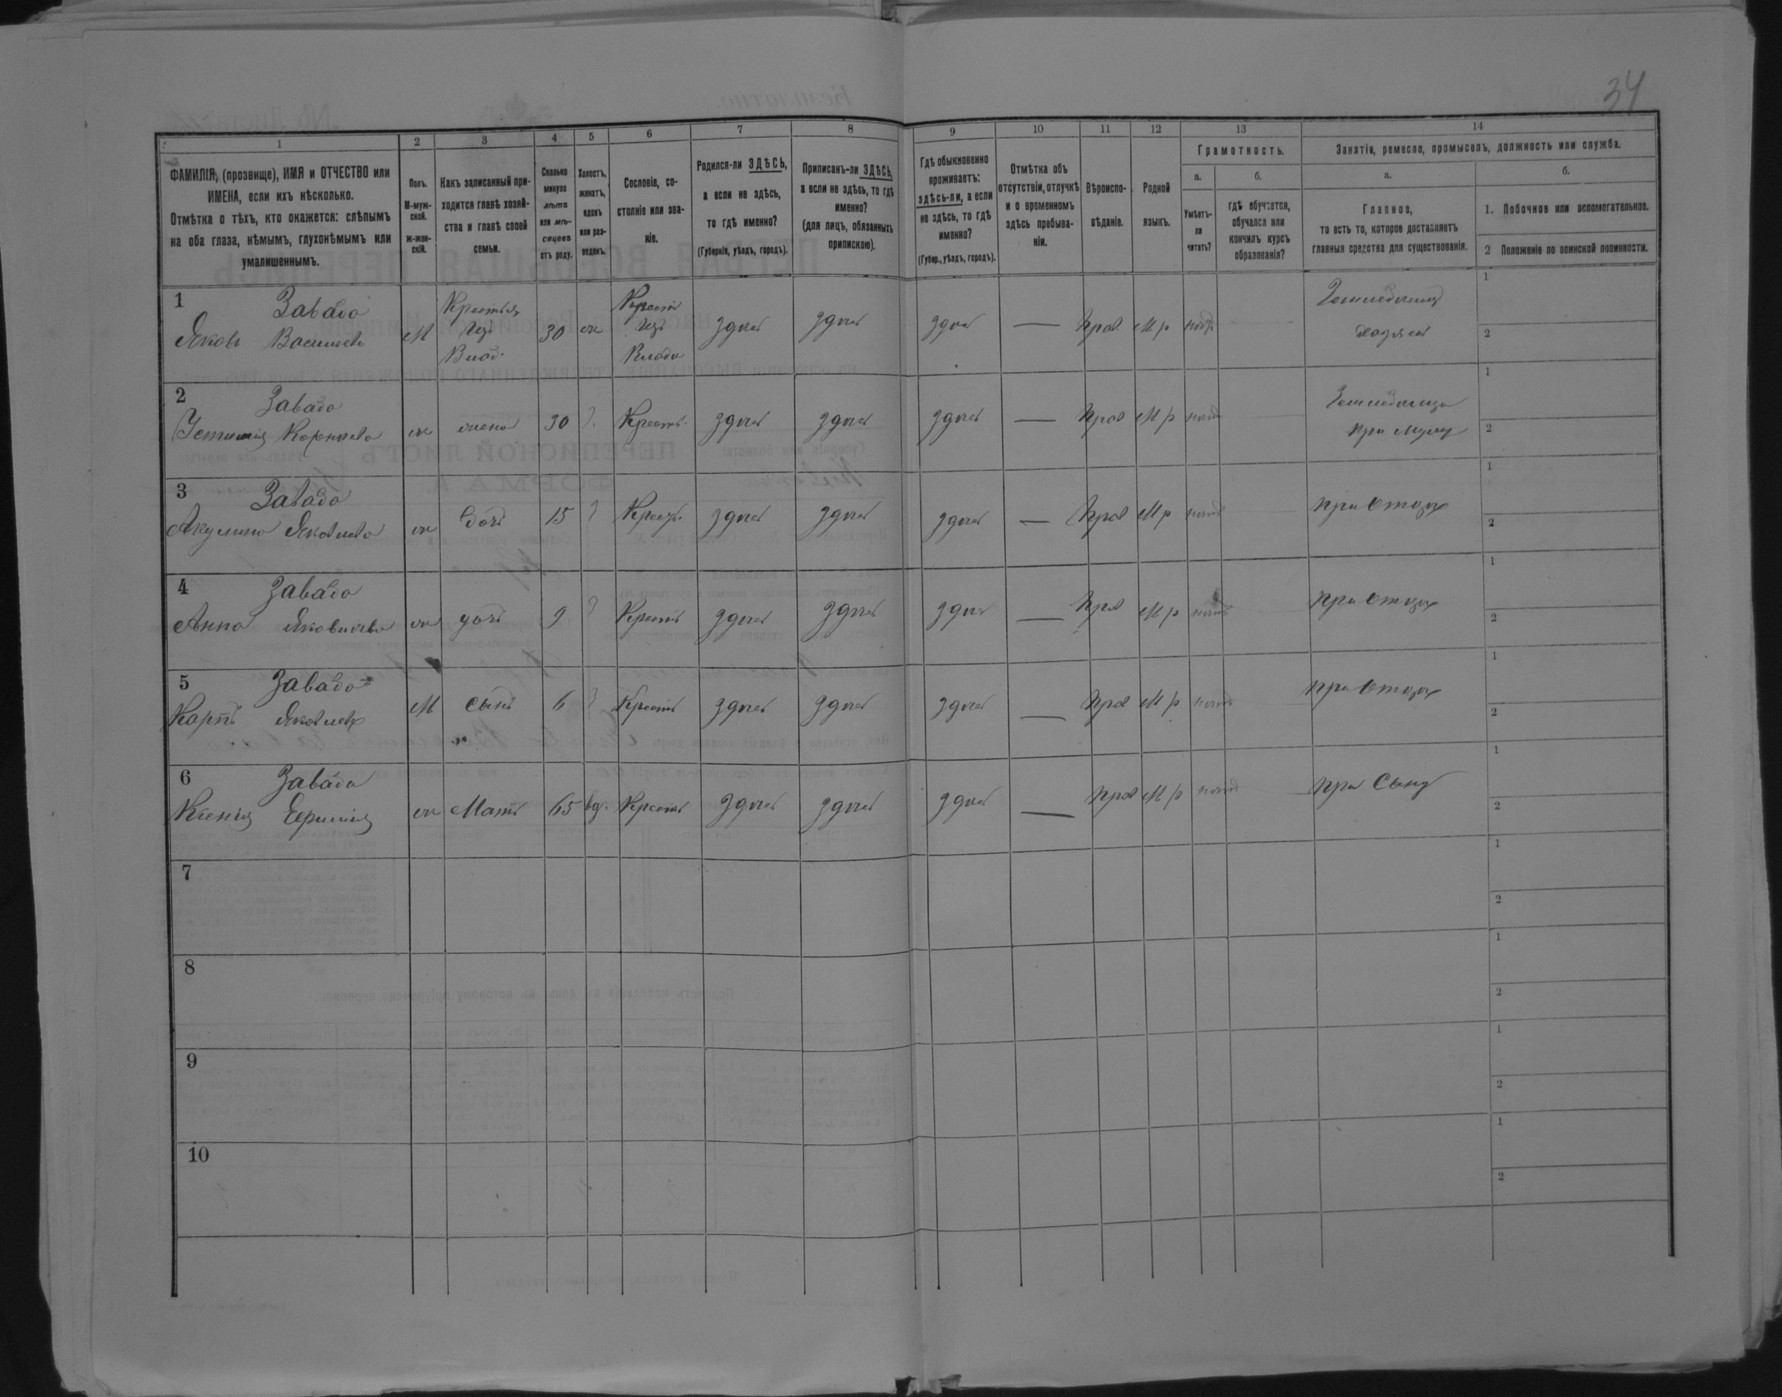 34
1 2 3 4 5 6 7 8 9 10 11 12 13 14
ФАМИЛІЯ, (прозвище), ИМЯ и ОТЧЕСТВО или
ИМЕНА, если ихъ нѣсколько.
Отмѣтка о тѣхъ, кто окажется: слѣпымъ
на оба глаза, нѣмымъ, глухонѣмымъ или
умалишеннымъ.
Полъ.
М-муж-
ской.
Ж-жен-
скій.
Какъ записанный при-
ходится главѣ хозяй-
ства и главѣ своей
семьи.
Сколько
минуло
лѣтъ
или мѣ-
сяцевъ
отъ роду.
Холостъ,
женатъ,
вдовъ
или раз-
веденъ.
Сословіе, со-
стояніе или зва-
ніе.
Родился-ли ЗДѢСЬ,
а если не здѣсь,
то гдѣ именно?
(Губернія, уѣздъ, городъ).
Приписанъ-ли ЗДѢСЬ,
а если не здѣсь, то гдѣ
именно?
(для лицъ, обязанныхъ
припискою).
Гдѣ обыкновенно
проживаетъ:
здѣсь-ли, а если
не здѣсь, то гдѣ
именно?
(Губер., уѣздъ, городъ).
Отмѣтка объ
отсутствіи, отлучкѣ
и о временномъ
здѣсь пребыва-
ніи.
Вѣроиспо-
вѣданіе.
Родной
языкъ.
Грамотность.
а.
Умѣетъ-
ли
читать?
б.
гдѣ обучается,
обучался или
кончилъ курсъ
образованія?
Занятіе, ремесло, промыселъ, должность или служба.
а.
Главное,
то есть то, которое доставляетъ
главныя средства для существованія.
б.
1. Побочное или вспомогательное.
2 Положеніе по воинской повинности.
1 Завада М Крестья 30 Крест здесь здесь здесь — Прав М р 1
Яковъ Васильевъ изъ изъ хозяинъ 2
Влад. Владѣ
2 Завада жена 30 Крестъ. здесь здесь здесь — Прав М р 1
Устинія Корнѣева при мужу 2
3 Завада дочь 15 Крестъ. здесь здесь здесь — Прав М р при отцу 1
Акулина Яковлева 2
4 Завада дочь 9 Крестъ здесь здесь здесь — Прав М р при отцу 1
Анна Яковлева 2
5 Завада М сынъ 6 Крестъ здесь здесь здесь — Прав М р при отцу 1
Карпъ Яковлевъ 2
6 Завада Мать 65 вд. Крестъ здесь здесь здесь — Прав М р при Сыну 1
Ксенія 2
7 1
2
8 1
2
9 1
2
10 1
2